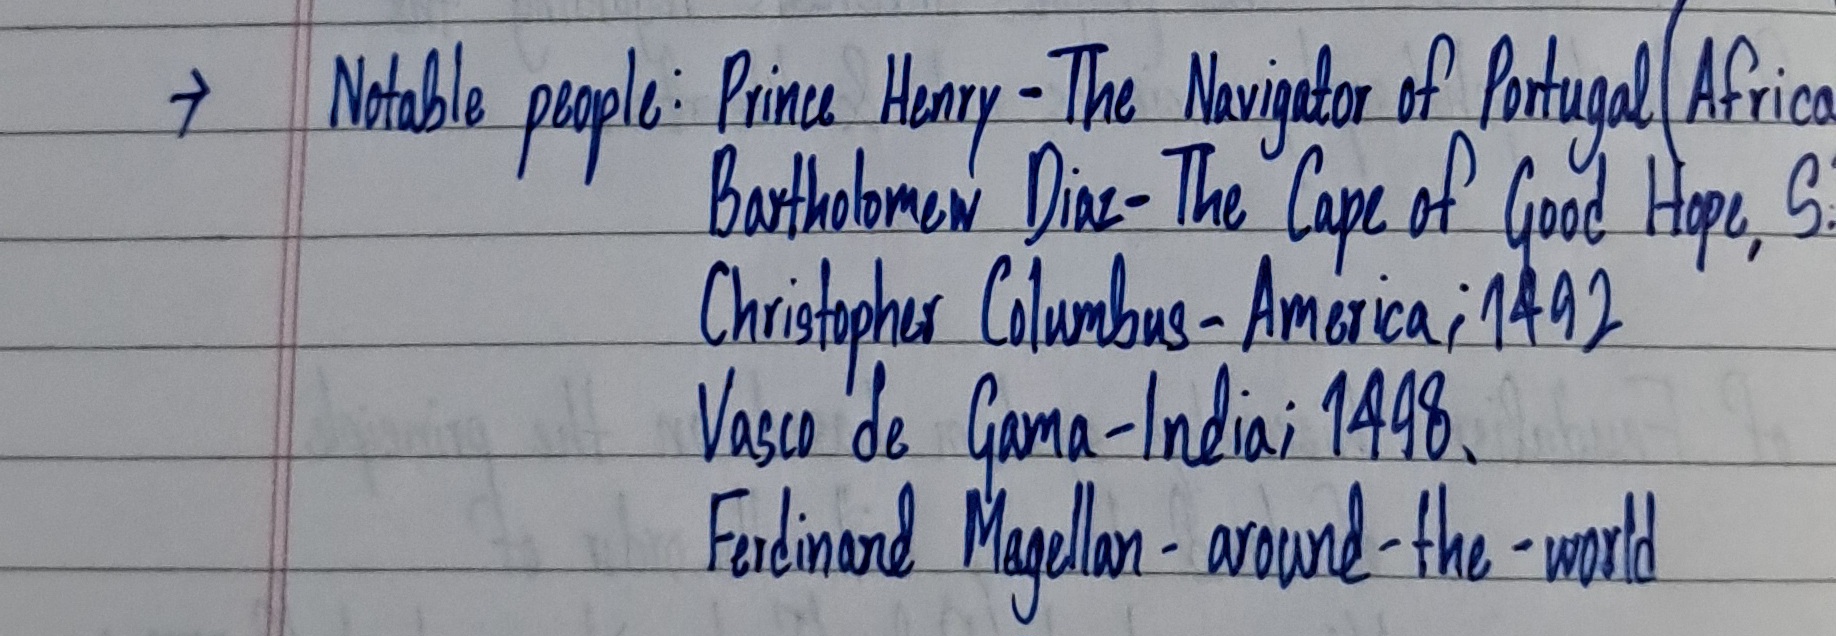 → Notable people: Prince Henry - The Navigator of Portugal (Africa
Bartholomew Diaz - The Cape of Good Hope, S.
Christopher Columbus - America; 1492
Vasco de Gama - India; 1498.
Ferdinand Magellan - around - the - world